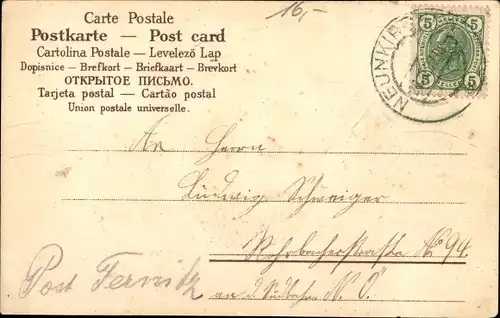 Carte Postale
16,-
Postkarte — Post card
Cartolina Postale — Levelező Lap
Dopisnice — Brefkort — Briefkaart — Brevkort
ОТКРЫТОЕ ПИСЬМО.
Tarjeta postal — Cartão postal
Union postale universelle.
5 5
5 5
NEUNKIR
An Herrn
Ludwig Schweiger
Rohrbacherstraße No 94.
Post Ternitz
an d. Südbahn N. Ö